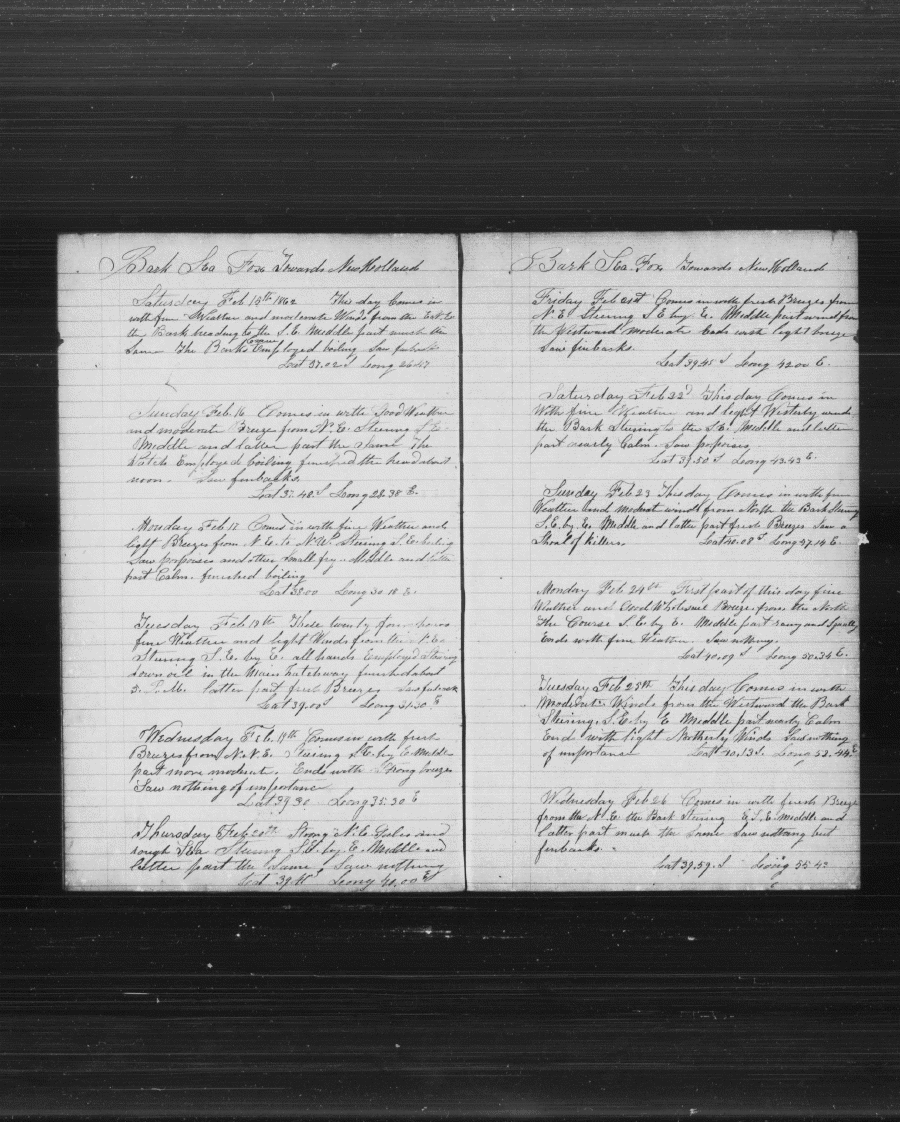 Bark Sea Fox Towards New Holland
Saturday Feb 15th 1862 This day Comes in
with fine Weather and moderate Winds from the
the Bark heading to the S.E. Middle part much the
Same The Barks Crew Employed boiling Saw finbacks
Lat 37.02 S Long 26.47
Sunday Feb. 16 Comes in with Good Weather
and moderate Breeze from N.E. Steering S E
Middle and latter part the Same The
Watch Employed boiling finished the head about
noon. Saw finbacks.
Lat 37.48 S Long 28.38 E.
Monday Feb 17 Comes in with fine Weather and
light Breezes from N.E. to N.W. Steering S.E. boiling
Saw porpoises and other Small fry. Middle and latter
part Calm. finished boiling
Lat 38.00 Long 30.18 E.
Tuesday Feb 18th These twenty four hours
fine Weather and light Winds from the N.E.
Steering S.E. by E. all hands Employed Stowing
down oil in the Main hatchway finished about
5. P.M. latter part fresh Breezes Saw finback
Lat 39.00 S Long 31.30 E
Wednesday Feb. 19th Comes in with fresh
Breezes from N.N.E. Steering S.E. by E. Middle
part more moderate. Ends with Strong breezes
Saw nothing of importance
Lat 39.30 Long 35.30 E
Thursday Feb 20th Strong N.E. Gales and
rough Sea Steering S.E. by E. Middle and
latter part the Same Saw nothing
Lat 39. Long 40.00 E
Bark Sea Fox Towards New Holland
Friday Feb 21st Comes in with fresh Breezes from
N.E. Steering S E by E. Middle part wind from
the Westward moderate Ends with light breeze
Saw finbacks.
Lat 39.45 S Long 42.00 E.
Saturday Feb 22d This day Comes in
With fine Weather and light Westerly winds
the Bark Steering to the S.E. Middle and latter
part nearly Calm. Saw porpoises
Lat 39.50 S Long 43.43 E.
Sunday Feb 23 This day Comes in with fine
Weather and moderate winds from North the Bark Steering
S.E. by E. Middle and latter part fresh Breezes Saw a
Shoal of killers. Lat 40.08 S Long 47.14 E.
Monday Feb 24th First part of this day fine
Weather and Good Wholesail Breeze from the North
The Course S.E. by E. Middle part rainy and Squally
Ends with fine Weather. Saw nothing.
Lat 40.09 S Long 50.34 E.
Tuesday Feb 25th This day Comes in with
Moderate Winds from the Westward the Bark
Steering. S.E. by E Middle part nearly Calm
End with light Northerly Winds Saw nothing
of importance Lat 40.13 S. Long 53.44 E
Wednesday Feb 26 Comes in with fresh Breeze
from the N.E. the Bark Steering E.S.E. Middle and
latter part much the Same Saw nothing but
finbacks.
Lat 39.59. S Long 55.42